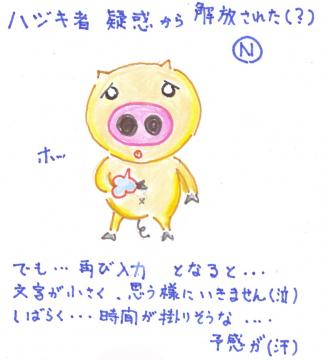 ハヅキ者 疑惑から 解放された(?)
N
ホッ
でも… 再び入力 となると…
文字が小さく、思う様にいきません(泣)
しばらく… 時間が掛りそうな ….
予感が(汗)